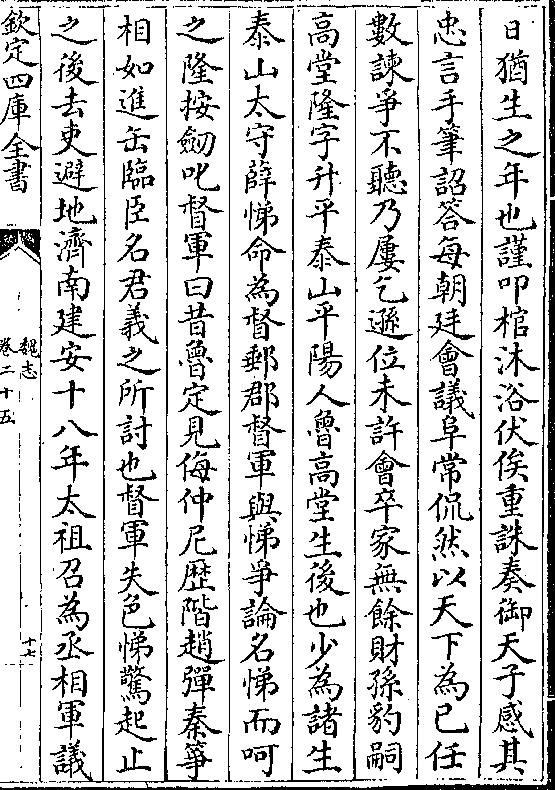 日猶生之年也謹叩棺沐浴伏俟重誅奏御天子感其
忠言手筆詔答每朝廷會議阜常侃然以天下為已任
數諫爭不聽乃屢乞遜位未許會卒家無餘財孫豹嗣
高堂隆字升平泰山平陽人魯高堂生後也少為諸生
泰山太守薛悌命為督郵郡督軍與悌爭論名悌而呵
之隆按劒叱督軍曰昔魯定見侮仲尼歷階趙彈秦箏
相如進缶臨臣名君義之所討也督軍失色悌驚起止
之後去吏避地濟南建安十八年太祖召為丞相軍議
欽定四庫全書
魏志
卷二十五
十七